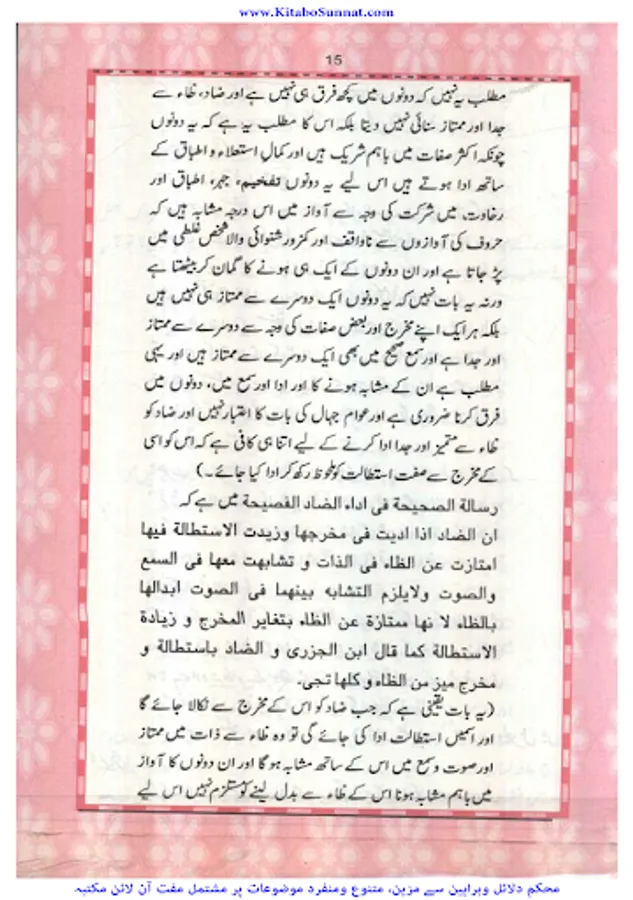 www.KitaboSunnat.com
15
مطلب یہ نہیں کہ دونوں میں کچھ فرق ہی نہیں ہے اور ضاد، ظاء سے
جدا اور ممتاز سنائی نہیں دیتا بلکہ اس کا مطلب یہ ہے کہ یہ دونوں
چونکہ اکثر صفات میں باہم شریک ہیں اور کمال استعلاء و اطباق کے
ساتھ ادا ہوتے ہیں اس لیے یہ دونوں تفخیم، جہر، اطباق اور
رخاوت، میں شرکت کی وجہ سے آواز میں اس درجہ مشابہ ہیں کہ
حروف کی آوازوں سے ناواقف اور کمزور شنوائی والا شخص غلطی میں
پڑ جاتا ہے اور ان دونوں کے ایک ہی ہونے کا گمان کر بیٹھتا ہے
ورنہ یہ بات نہیں کہ یہ دونوں ایک دوسرے سے ممتاز ہی نہیں ہیں
بلکہ ہر ایک اپنے مخرج اور بعض صفات کی وجہ سے دوسرے سے ممتاز
اور جدا ہے اور سمع صحیح میں بھی ایک دوسرے سے ممتاز ہیں اور یہی
مطلب ہے ان کے مشابہ ہونے کا اور ادا اور سمع میں، دونوں میں
فرق کرنا ضروری ہے اور عوام جہال کی بات کا اعتبار نہیں اور ضاد کو
ظاء سے متمیز اور جدا ادا کرنے کے لیے اتنا ہی کافی ہے کہ اس کو اسی
کے مخرج سے صفت استطالت کو ملحوظ رکھ کر ادا کیا جائے۔)
رسالة الصحيحة فى اداء الضاد الفصيحة میں ہے کہ
ان الضاد اذا اديت فى مخرجها وزيدت الاستطالة فيها
امتازت عن الظاء فى الذات و تشابهت معها فى السمع
والصوت ولايلزم التشابه بينهما فى الصوت ابدالها
بالظاء لا نها ممتازة عن الظاء بتغاير المخرج و زيادة
الاستطالة كما قال ابن الجزرى و الضاد باستطالة و
مخرج ميز من الظاء و كلها تجى۔
(یہ بات یقینی ہے کہ جب ضاد کو اس کے مخرج سے نکالا جائے گا
اور اسمیں استطالت ادا کی جائے گی تو وہ ظاء سے ذات میں ممتاز
اور صوت و سمع میں اس کے ساتھ مشابہ ہوگا اور ان دونوں کا آواز
میں باہم مشابہ ہونا اس کے ظاء سے بدل لینے کو مستلزم نہیں اس لیے
محکم دلائل وبراہین سے مزین، متنوع ومنفرد موضوعات پر مشتمل مفت آن لائن مکتبہ